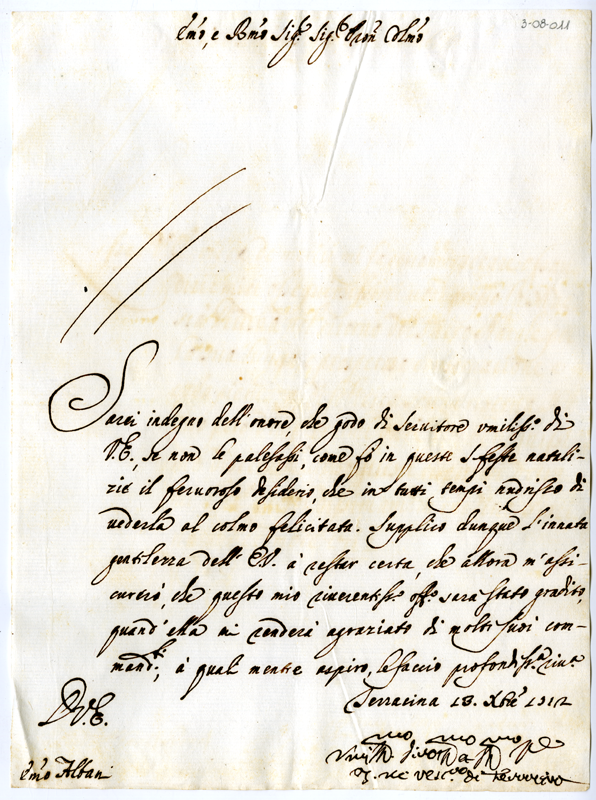 3-08-011
Em̃o, e Rm̃o Sig.r Sig.r Pron Colm̃o
Sarei indegno dell'onore, che godo di servitore umiliss.o di
V.E., se non le palesassi, come fò in queste S. feste natali-
zie il fervoroso desiderio, che in tutti tempi nudrisco di
vederla al colmo felicitata. Supplico dunque l'innata
gentilezza dell'E.V. à restar certa, che allora m'assi-
curerò, che questo mio riverentiss.o off.o sarà stato gradito,
quand'ella mi renderà agraziato di molti suoi com-
mand.ti, à quali mentre aspiro, le faccio profondiss.a riv.a
Terracina 13. Xbre
D.V.E.
Em̃o Albani
Vesc.vo di Terracina